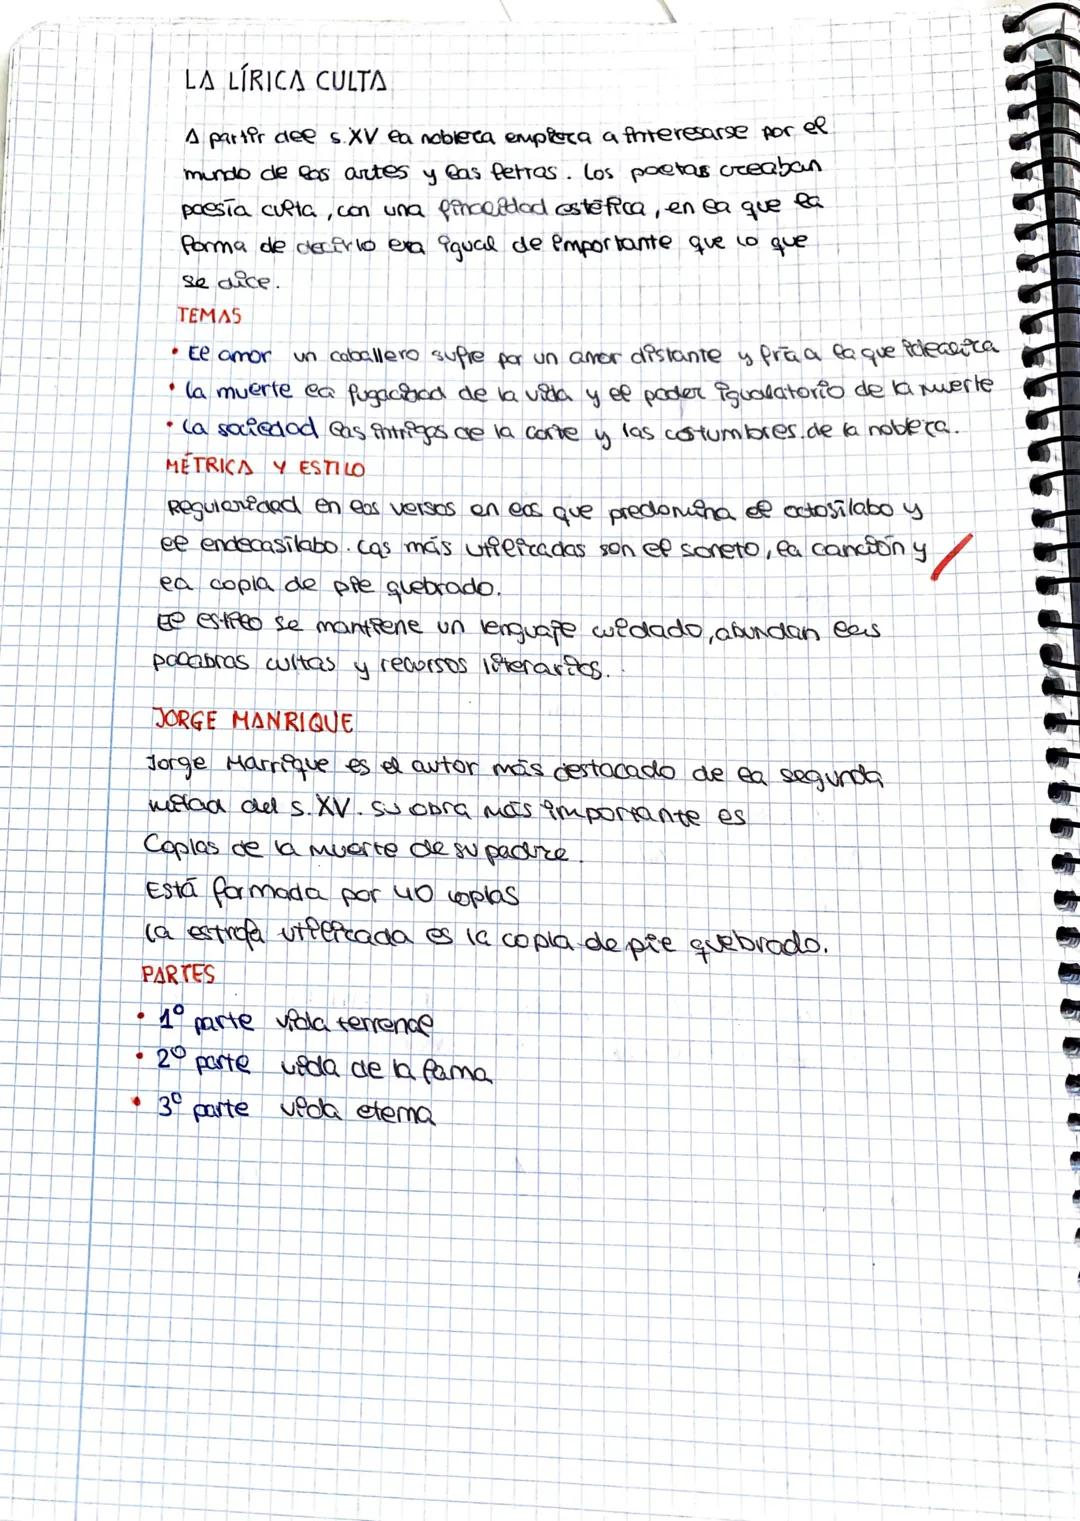 LA LÍRICA CULTA
A partir del s.XV la nobleza empieza a interesarse por el
mundo de las artes y las letras. Los poetas creaban
poesía culta, con una finalidad estética, en la que la
forma de decirlo era igual de importante que lo que
se dice.
TEMAS
• El amor un caballero sufre por un amor distante y fría a la que idealiza
• La muerte la fugacidad de la vida y el poder igualatorio de la muerte
• La sociedad las intrigas de la corte y las costumbres de la nobleza.
MÉTRICA Y ESTILO
Regularidad en los versos en los que predomina el octosílabo y
el endecasílabo. Las más utilizadas son el soneto, la canción y
la copla de pie quebrado.
El estilo se mantiene un lenguaje cuidado, abundan las
palabras cultas y recursos literarios.
JORGE MANRIQUE
Jorge Manrique es el autor más destacado de la segunda
mitad del s.XV. Su obra más importante es
Coplas de la muerte de su padre.
Está formada por 40 coplas
La estrofa utilizada es la copla de pie quebrado.
PARTES
• 1º parte vida terrenal
• 2º parte vida de la fama
• 3º parte vida eterna